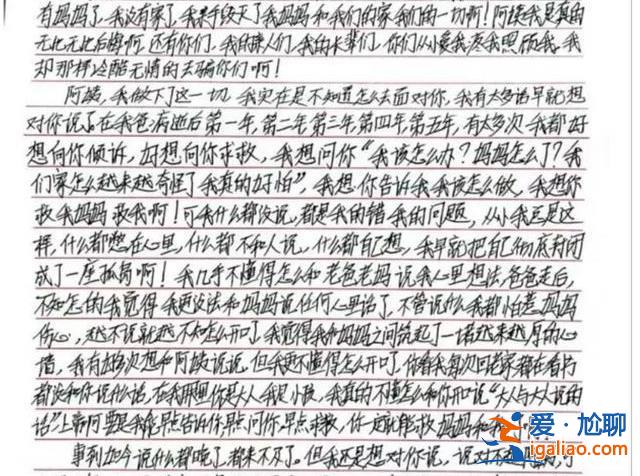 有妈妈了,我没有家了,我亲手毁灭了我妈妈和我们的家我们的一切啊!阿姨我是真的
无比无比后悔啊,还有你们,我的亲人们,我的长辈们,你们从小爱我疼我照顾我,我
却那样冷酷无情的去骗你们啊!
阿姨,我做下了这一切,我实在是不知道怎么去面对你,我有太多话早就想
对你说了。在我爸病逝后第一年,第二年,第三年,第四年,第五年,有太多次,我都好
想向你倾诉,好想向你求救,我想问你“我该怎么办?妈妈怎么了?我
们家怎么越来越奇怪了我真的好怕”,我想你告诉我我该怎么做,我想你
救我妈妈救我啊!可我什么都没说,都是我的错我的问题,从小我总是这
样,什么都憋在心里,什么都不和人说,什么都自己想,我早就把自己彻底封闭
成了一座孤岛啊!我几乎不懂得怎么和老爸老妈说我心里想法,爸爸走后,
不知怎的我觉得我更没法和妈妈说任何心里话了,不管说什么我都怕惹妈妈
伤心,越不说就越不知怎么开口了,我觉得我和妈妈之间筑起了一堵越来越厚的心
墙,我有好多次想和阿姨说说,但我更不懂得怎么开口了,你看我每次回老家都在看书
都没和你说什么话,在我那里你是大人我是小孩,我真的不懂怎么和你开口说“大人与大人说的
话”上帝阿要是我能早点告诉你早点问你,早点求救,你一定就能救妈妈和我
事到如今说什么都晚了,都来不及了。但我还是想对你说,说对不起
爱·尬聊
igaliao.com